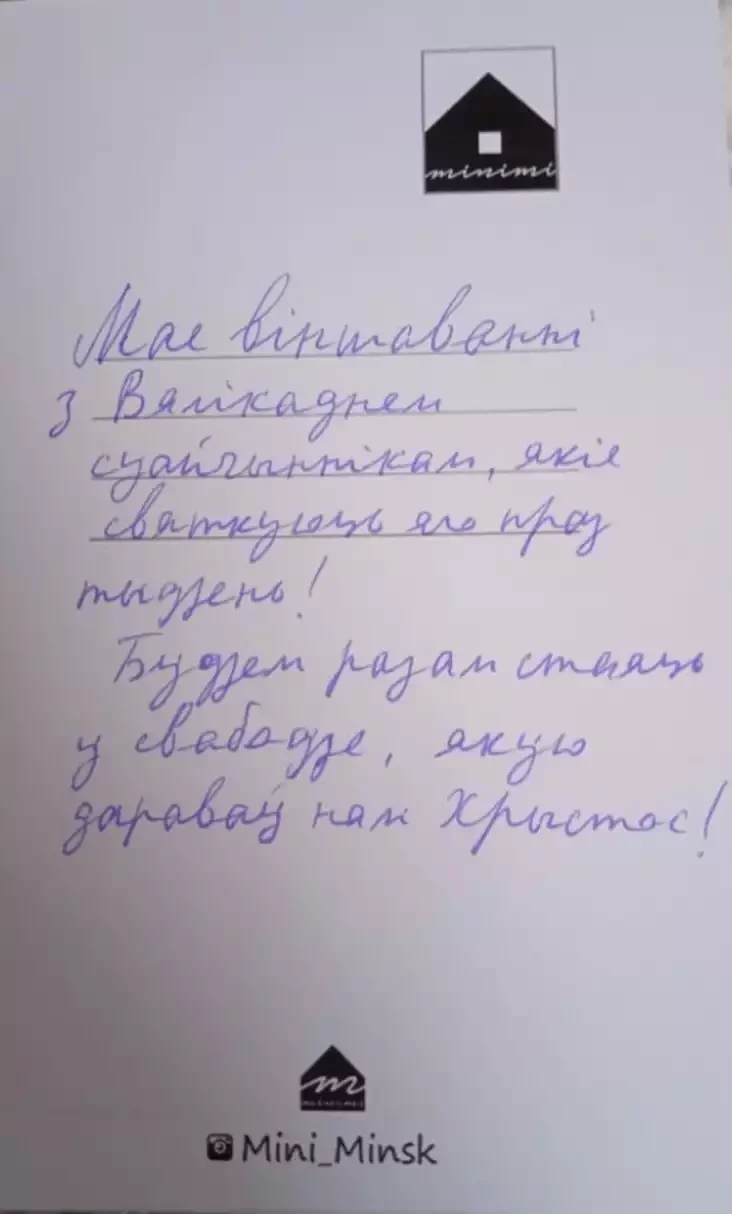 minimi
Мае віншаванні
з Вялікаднем
суайчыннікам, якіе
святкуюць яго праз
тыдзень!
Будзем разам стаяць
у свабодзе, якую
дараваў нам Хрыстос!
m
Mini_Minsk